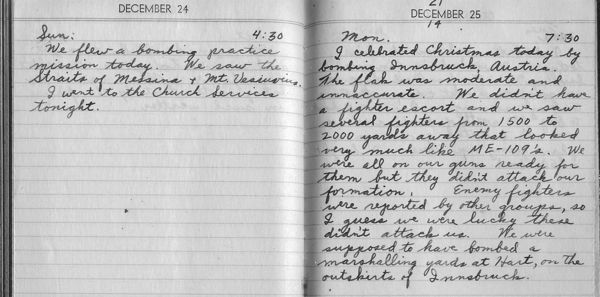 DECEMBER 24
Sun. 4:30
We flew a bombing practice
mission today. We saw the
Straits of Messina & Mt. Vesiuvius.
I went to the Church Services
tonight.
21
DECEMBER 25
14
Mon. 7:30
I celebrated Christmas today by
bombing Innsbruck, Austria.
The flak was moderate and
innaccurate. We didn't have
a fighter escort and we saw
several fighters from 1500 to
2000 yards away that looked
very much like ME-109's. We
were all on our guns ready for
them but they didn't attack our
formation. Enemy fighters
were reported by other groups, so
I guess we were lucky these
didn't attack us. We were
supposed to have bombed a
marshalling yards at Hart, on the
outskirts of Innsbruck.